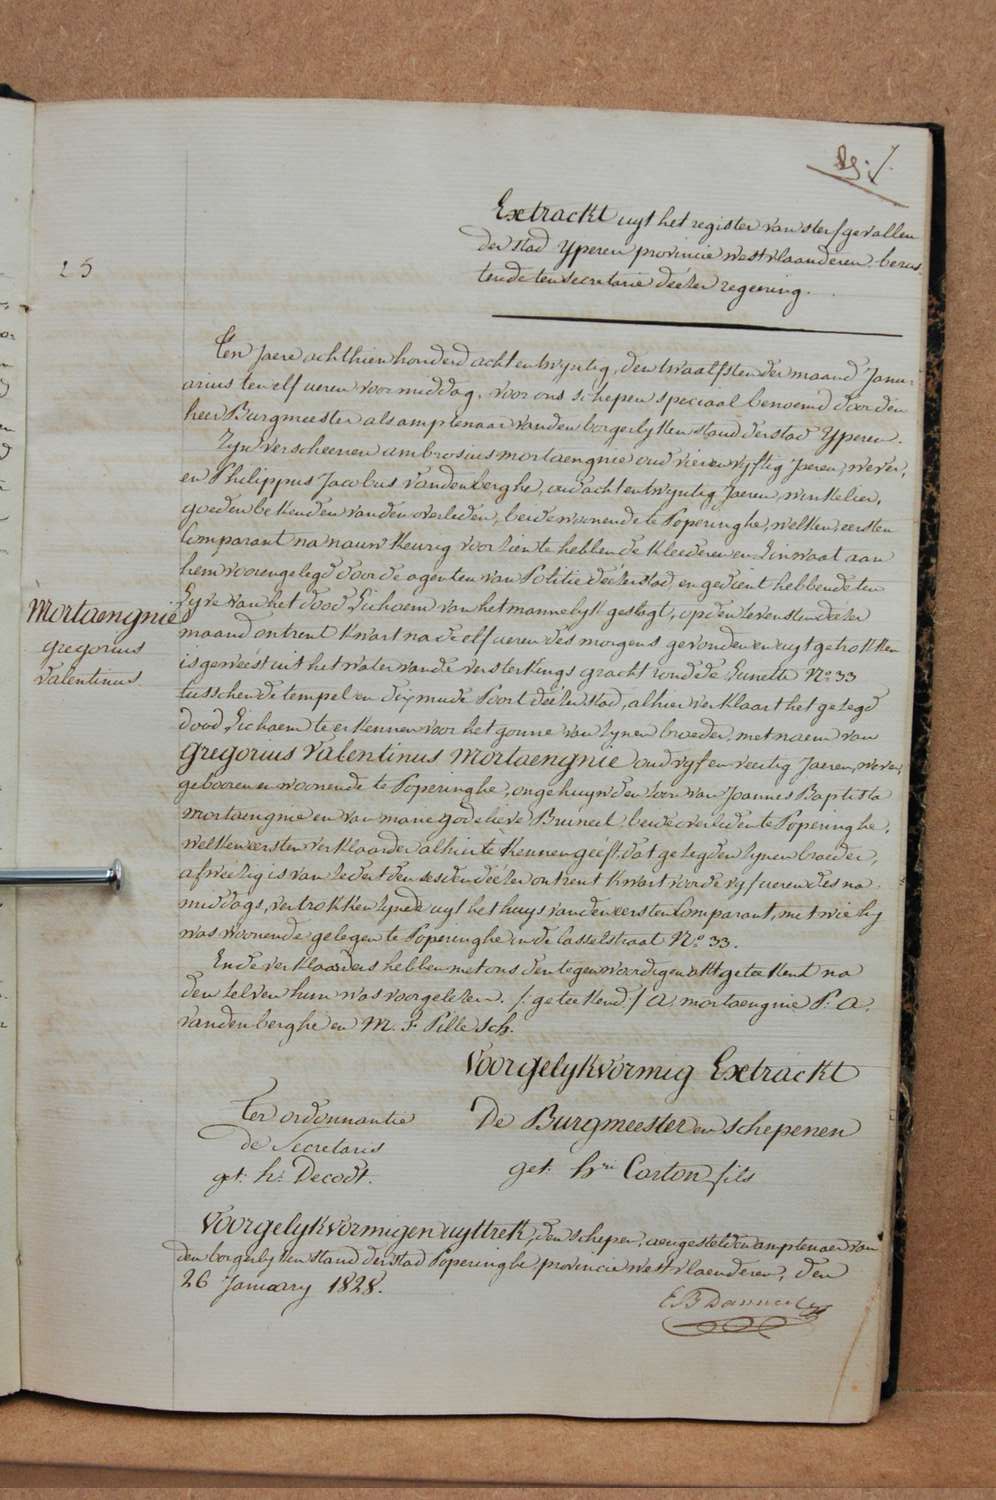 Extrackt uyt het register van sterfgevallen
der stad Yperen provincie westvlaanderen berus
tende ten secretarie deezer regeering.
25
Ten Jaere achthien honderd acht en twyntig, den twaalfsten der maand Janu-
arius ten elf ueren voor middag, voor ons schepen speciaal benoemd door den
heer Burgmeester als amptenaar van den borgerlyken stand der stad Yperen.
Zyn verscheenen ambrosius mortaengnie oud vier en vyftig Jaeren, wever,
en Philippus Jacobus Vandenberghe, oud acht en twyntig Jaeren, winkelier,
goeden bekenden van den overleden, beide woonende te Poperinghe, welken eersten
Comparant na nauwkeurig voorzien te hebben de kleederen en Linwaat aan
hem voorengelegd door de agenten van Politie deezer stad en gedient hebbende ten
Lyve van het dood Lichaem van het mannelyk geslagt, op den zevensten dezer
maand ontrent kwart na de elf ueren des morgens gevonden en uytgetrokken
is geweést uit het water van de versterkings gracht rond de Lunette No. 33
tusschen de tempel en dixmude Poort deezer stad, alhier verklaart het gezegd
dood Lichaem te erkennen voor het gonne van zynen broeder, met naem van
Gregorius Valentinus Mortaengnie oud vyf en veertig Jaeren, wever,
gebooren en woonende te Poperinghe, ongehuywden zoon van Joannes Baptista
mortaengnie en van marie godelieve Bruneel beide overleden te Poperinghe,
welken eersten verklaarder alhier te kennen geeft dat gezegden zynen broeder,
afweézig is van zedert den sesden deézer ontrent kwart voor de vyf ueren des na
middags, vertrokken zynde uyt het huys van den eersten Comparant, met wie hy
was woonende gelegen te Poperinghe in de Casselstraat No. 33.
Ende verklaarders hebben met ons den tegenwoordigen akt geteekend na
den zelven hun was voorgelezen. /: geteekend :/ A. mortaengnie P. A.
Vandenberghe en M. F. Pille Sch.
Mortaengnie
gregorius
Valentinus
Voorgelykvormig Extrackt
Ter ordonnantie
de Secretaris
get. h. Decodt.
De Burgmeester en schepenen
get. hri Carton fils
Voorgelykvormigen uyttrek, den schepen, aengestelden amptenaer van
den borgerlyken stand der stad Poperinghe, provincie westvlaenderen, den
26 January 1828.